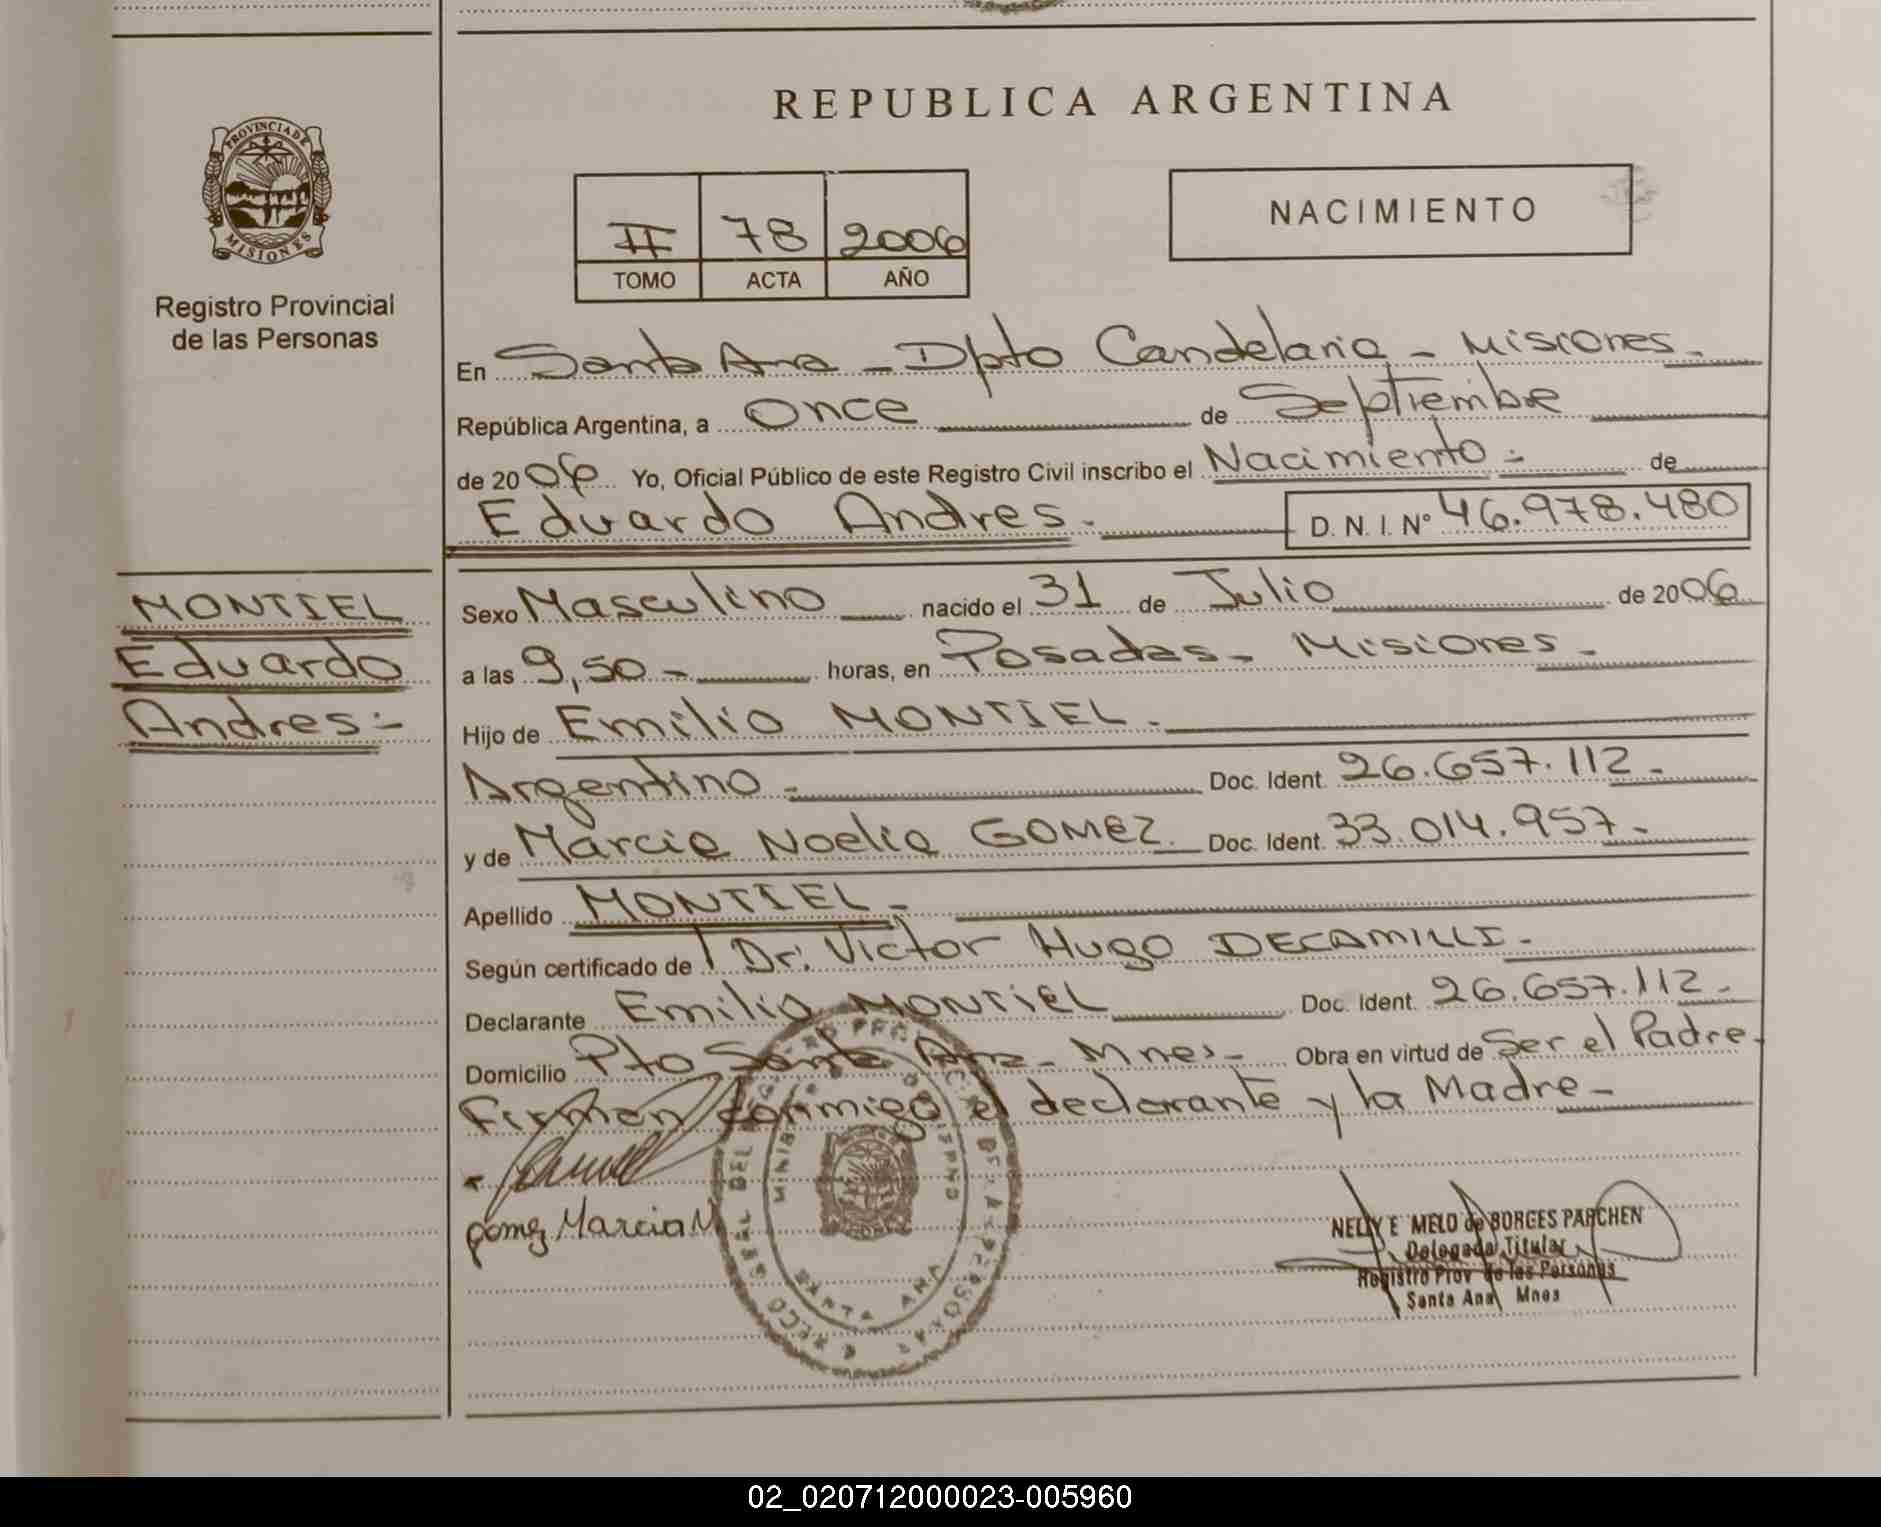 PROVINCIA DE
MISIONES
Registro Provincial
de las Personas
MONTIEL
Eduardo
Andres:-
REPUBLICA ARGENTINA
II 78 2006
TOMO ACTA AÑO
NACIMIENTO
En Santa Ana - Dpto Candelaria - Misiones.
República Argentina, a Once de Septiembre
de 2006 Yo, Oficial Público de este Registro Civil inscribo el Nacimiento - de
Eduardo Andres. D. N. I. Nº 46.978.480
Sexo Masculino nacido el 31 de Julio de 2006
a las 9,50 - horas, en Posadas - Misiones -
Hijo de Emilio MONTIEL.
Argentino - Doc. Ident. 26.657.112 -
y de Marcia Noelia GOMEZ. Doc. Ident. 33.014.957 -
Apellido MONTIEL -
Según certificado de Dr. Victor Hugo DECAMILLI -
Declarante Emilio MONTIEL Doc. Ident. 26.657.112 -
Domicilio Pto Santa Ana - Mnes - Obra en virtud de Ser el Padre -
Firman conmigo el declarante y la Madre -
gomez Marcia N
SANTA ANA
NELLY E MELO de BORGES PARCHEN
Delegada Titular
Registro Prov de las Personas
Santa Ana Mnes
02_020712000023-005960